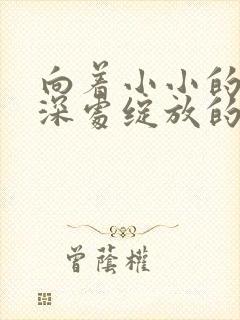 向着小小的
深处绽放的
曾蔭權